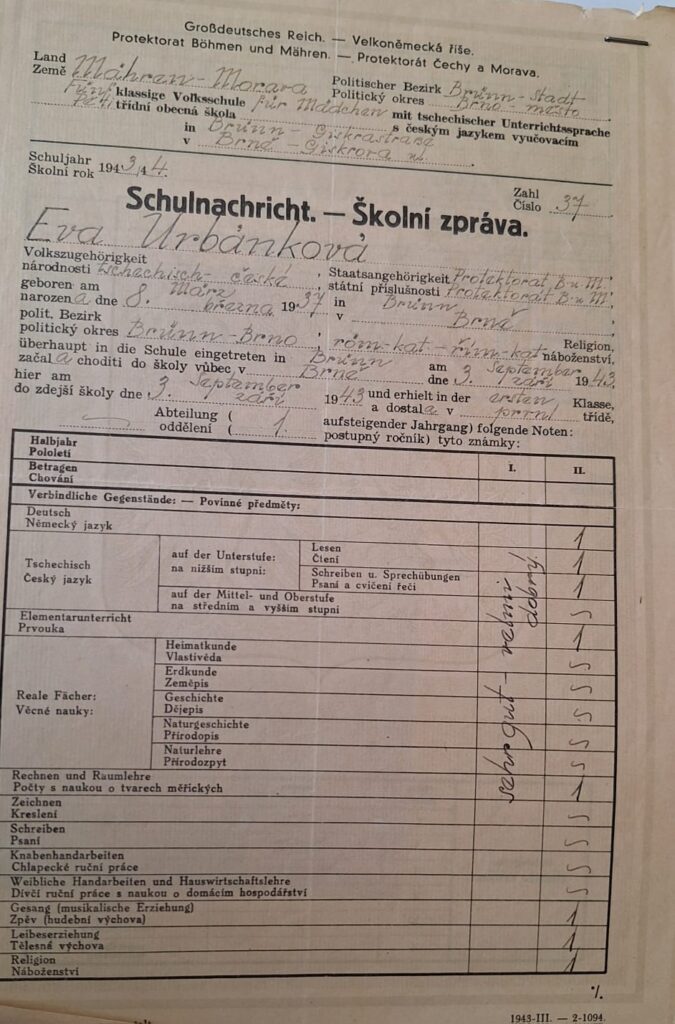 Großdeutsches Reich. — Velkoněmecká říše.
Protektorat Böhmen und Mähren. — Protektorát Čechy a Morava.
Land Mähren - Morava Politischer Bezirk Brünn - Stadt
Země Politický okres Brno - město
Fünf klassige Volksschule für Mädchen mit tschechischer Unterrichtssprache
Pěti třídní obecná škola s českým jazykem vyučovacím
in Brünn - Giskrastraße
v Brně - Giskrova ul.
Schuljahr
Školní rok 1943/44.
Zahl
Číslo 37
Schulnachricht. — Školní zpráva.
Eva Urbánková
Volkszugehörigkeit Staatsangehörigkeit Protektorat B.u.M.
národnosti tschechisch - české, státní příslušnosti Protektorat B.u.M,
geboren am 8. März 1937 in Brünn
narozena dne března v Brně,
polit. Bezirk Religion,
politický okres Brünn - Brno, röm-kat - řím-kat náboženství,
überhaupt in die Schule eingetreten in Brünn am 3. September 1943.
začala choditi do školy vůbec v Brně dne září
hier am 3. September 1943 und erhielt in der ersten Klasse,
do zdejší školy dne září a dostala v první třídě,
Abteilung ( aufsteigender Jahrgang) folgende Noten:
oddělení ( 1 postupný ročník) tyto známky:
Halbjahr
Pololetí
I. II.
Betragen
Chování
Verbindliche Gegenstände: — Povinné předměty:
Deutsch
Německý jazyk 1
Tschechisch
Český jazyk
auf der Unterstufe:
na nižším stupni:
Lesen
Čtení 1
Schreiben u. Sprechübungen
Psaní a cvičení řečí 1
auf der Mittel- und Oberstufe
na středním a vyšším stupni
Elementarunterricht
Prvouka 1
Reale Fächer:
Věcné nauky:
Heimatkunde
Vlastivěda
Erdkunde
Zeměpis
Geschichte
Dějepis
Naturgeschichte
Přírodopis
Naturlehre
Přírodozpyt
Rechnen und Raumlehre
Počty s naukou o tvarech měřických 1
Zeichnen
Kreslení
Schreiben
Psaní
Knabenhandarbeiten
Chlapecké ruční práce
Weibliche Handarbeiten und Hauswirtschaftslehre
Dívčí ruční práce s naukou o domácím hospodářství
Gesang (musikalische Erziehung)
Zpěv (hudební výchova) 1
Leibeserziehung
Tělesná výchova 1
Religion
Náboženství 1
sehr gut - velmi
dobrý.
·/.
1943-III. — 2-1094.